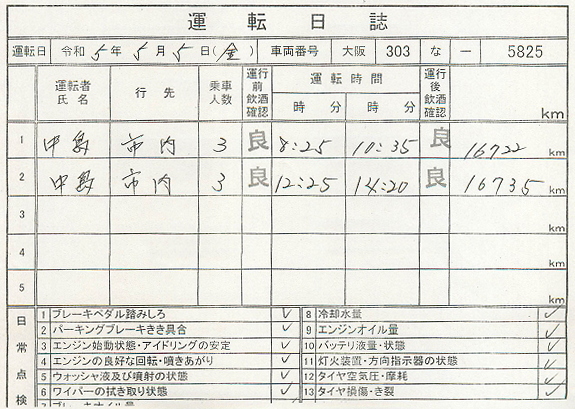 運転日誌
運転日 令和 5年 5月 5日(金) 車両番号 大阪 303 な ー 5825
運転者氏名 行先 乗車人数 運行前飲酒確認 運転時間 時 分 時 分 運行後飲酒確認 km
1 中島 市内 3 良 8:25 10:35 良 16722 km
2 中島 市内 3 良 12:25 14:20 良 16735 km
3 km
4 km
5 km
日常点検
1 ブレーキペダル踏みしろ ✓ 8 冷却水量 ✓
2 パーキングブレーキきき具合 ✓ 9 エンジンオイル量 ✓
3 エンジン始動状態・アイドリングの安定 ✓ 10 バッテリ液量・状態 ✓
4 エンジンの良好な回転・噴きあがり ✓ 11 灯火装置・方向指示器の状態 ✓
5 ウォッシャ液及び噴射の状態 ✓ 12 タイヤ空気圧・摩耗 ✓
6 ワイパーの拭き取り状態 ✓ 13 タイヤ損傷・き裂 ✓